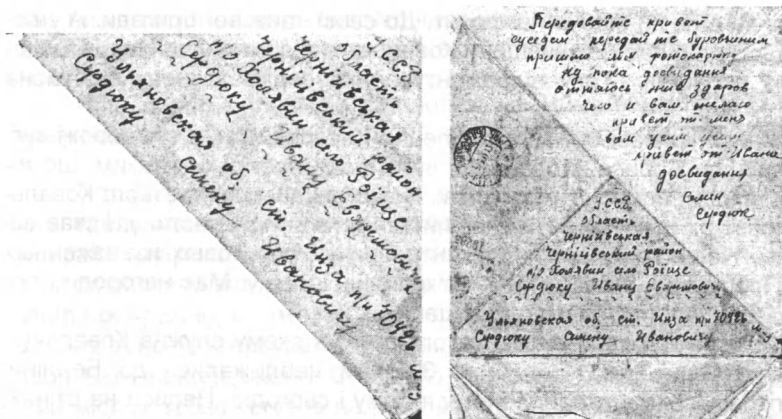 У.ССР
область
Чернігівська
Чернігівський район
п/о Холявин село Ройще
Сердюку Івану Евхимовичу
Ульяновская об. ст. Инза п/я 704/26
Сердюку Семену Ивановичу
Передовайте кривет
суседем передайте буровиним
пришлю мы фотокарточ
ну пока досвидания
отаюсь жив здаров
чего и вам желаю
привет от меня
вам усим усим
привет от Ивана
досвидания
Семен
Сердюк
У.ССР
область
Чернігівская
Чернігівський район
п/о Холявин село Ройще
Сердюку Івану Евхимовичу
Ульяновская об. ст. Инза п/я 704/26
Сердюку Семену Ивановичу